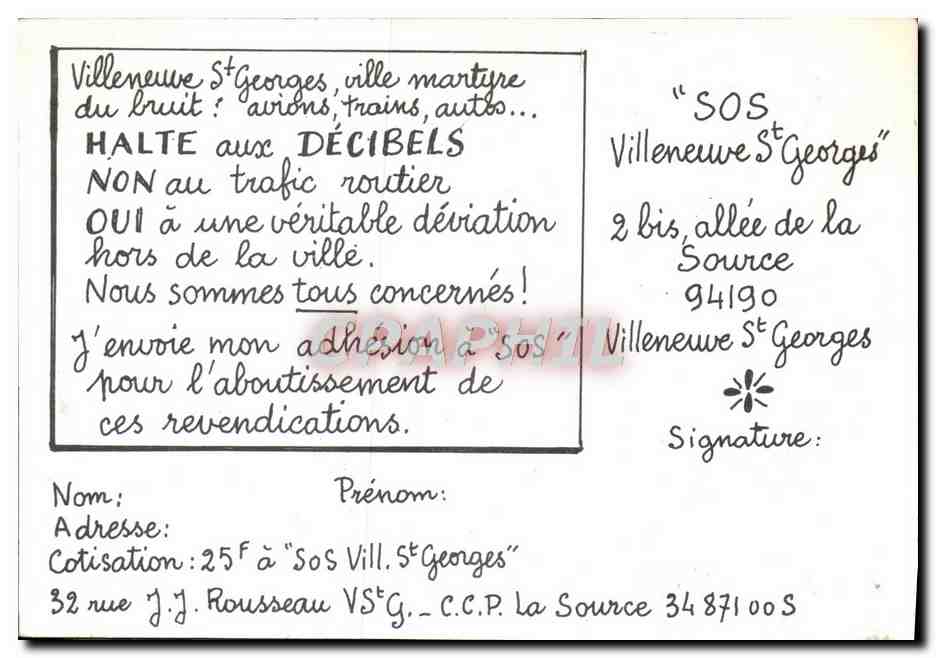 Villeneuve St Georges, ville martyre
du bruit : avions, trains, autos...
HALTE aux DÉCIBELS
NON au trafic routier
OUI à une véritable déviation
hors de la ville.
Nous sommes tous concernés !
J'envoie mon adhésion à "SOS"
pour l'aboutissement de
ces revendications.
"SOS
Villeneuve St Georges"
2 bis, allée de la
Source
94190
Villeneuve St Georges
Signature :
Nom :
Prénom :
Adresse :
Cotisation : 25F à "SOS Vill. St Georges"
32 rue J.J. Rousseau VStG. _ C.C.P. La Source 34 871 00 S
CPAPHIL